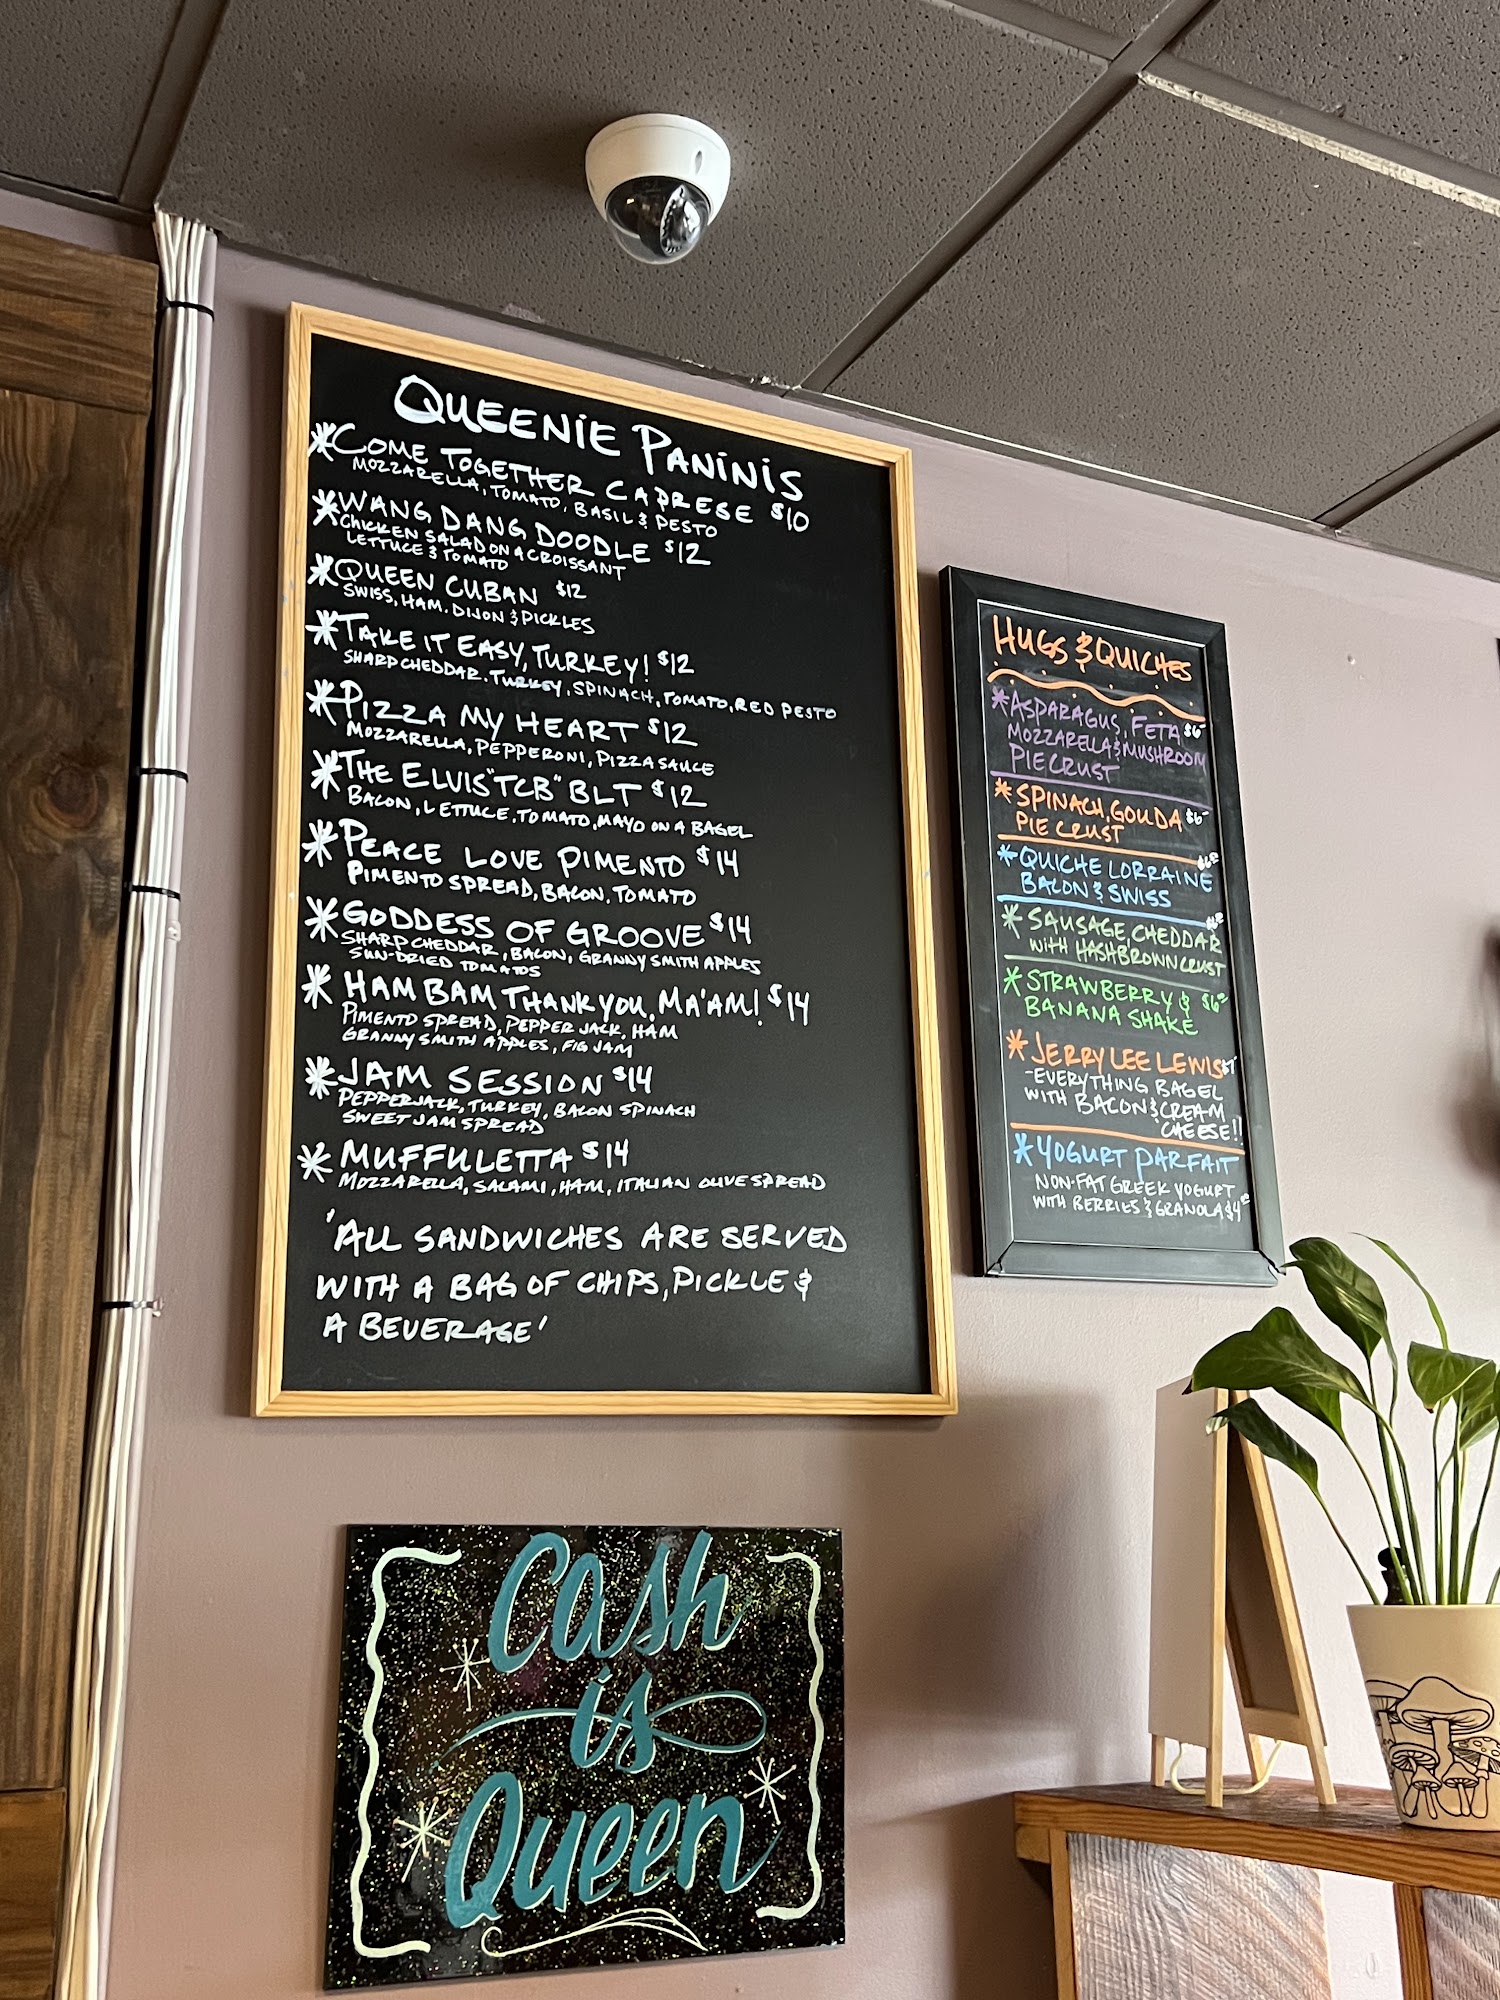 QUEENIE PANINIS
*COME TOGETHER CAPRESE $10
MOZZARELLA, TOMATO, BASIL & PESTO
*WANG DANG DOODLE $12
CHICKEN SALAD ON A CROISSANT
LETTUCE & TOMATO
*QUEEN CUBAN $12
SWISS, HAM, DIJON & PICKLES
*TAKE IT EASY, TURKEY! $12
SHARP CHEDDAR, TURKEY, SPINACH, TOMATO, RED PESTO
*PIZZA MY HEART $12
MOZZARELLA, PEPPERONI, PIZZA SAUCE
*THE ELVIS "TCB" BLT $12
BACON, LETTUCE, TOMATO, MAYO ON A BAGEL
*PEACE LOVE PIMENTO $14
PIMENTO SPREAD, BACON, TOMATO
*GODDESS OF GROOVE $14
SHARP CHEDDAR, BACON, GRANNY SMITH APPLES
SUN-DRIED TOMATOS
*HAM BAM THANK YOU, MA'AM! $14
PIMENTO SPREAD, PEPPER JACK, HAM
GRANNY SMITH APPLES, FIG JAM
*JAM SESSION $14
PEPPERJACK, TURKEY, BACON SPINACH
SWEET JAM SPREAD
*MUFFULETTA $14
MOZZARELLA, SALAMI, HAM, ITALIAN OLIVE SPREAD
'ALL SANDWICHES ARE SERVED
WITH A BAG OF CHIPS, PICKLE &
A BEVERAGE'
HUGS & QUICHES
*ASPARAGUS, FETA $6
MOZZARELLA & MUSHROOM
PIE CRUST
*SPINACH, GOUDA $6
PIE CRUST
*QUICHE LORRAINE
BACON & SWISS
*SAUSAGE, CHEDDAR
WITH HASHBROWN CRUST
*STRAWBERRY & $6
BANANA SHAKE
*JERRY LEE LEWIS
-EVERYTHING BAGEL
WITH BACON & CREAM
CHEESE!!
*YOGURT PARFAIT
NON-FAT GREEK YOGURT
WITH BERRIES & GRANOLA $4
Cash
is
Queen